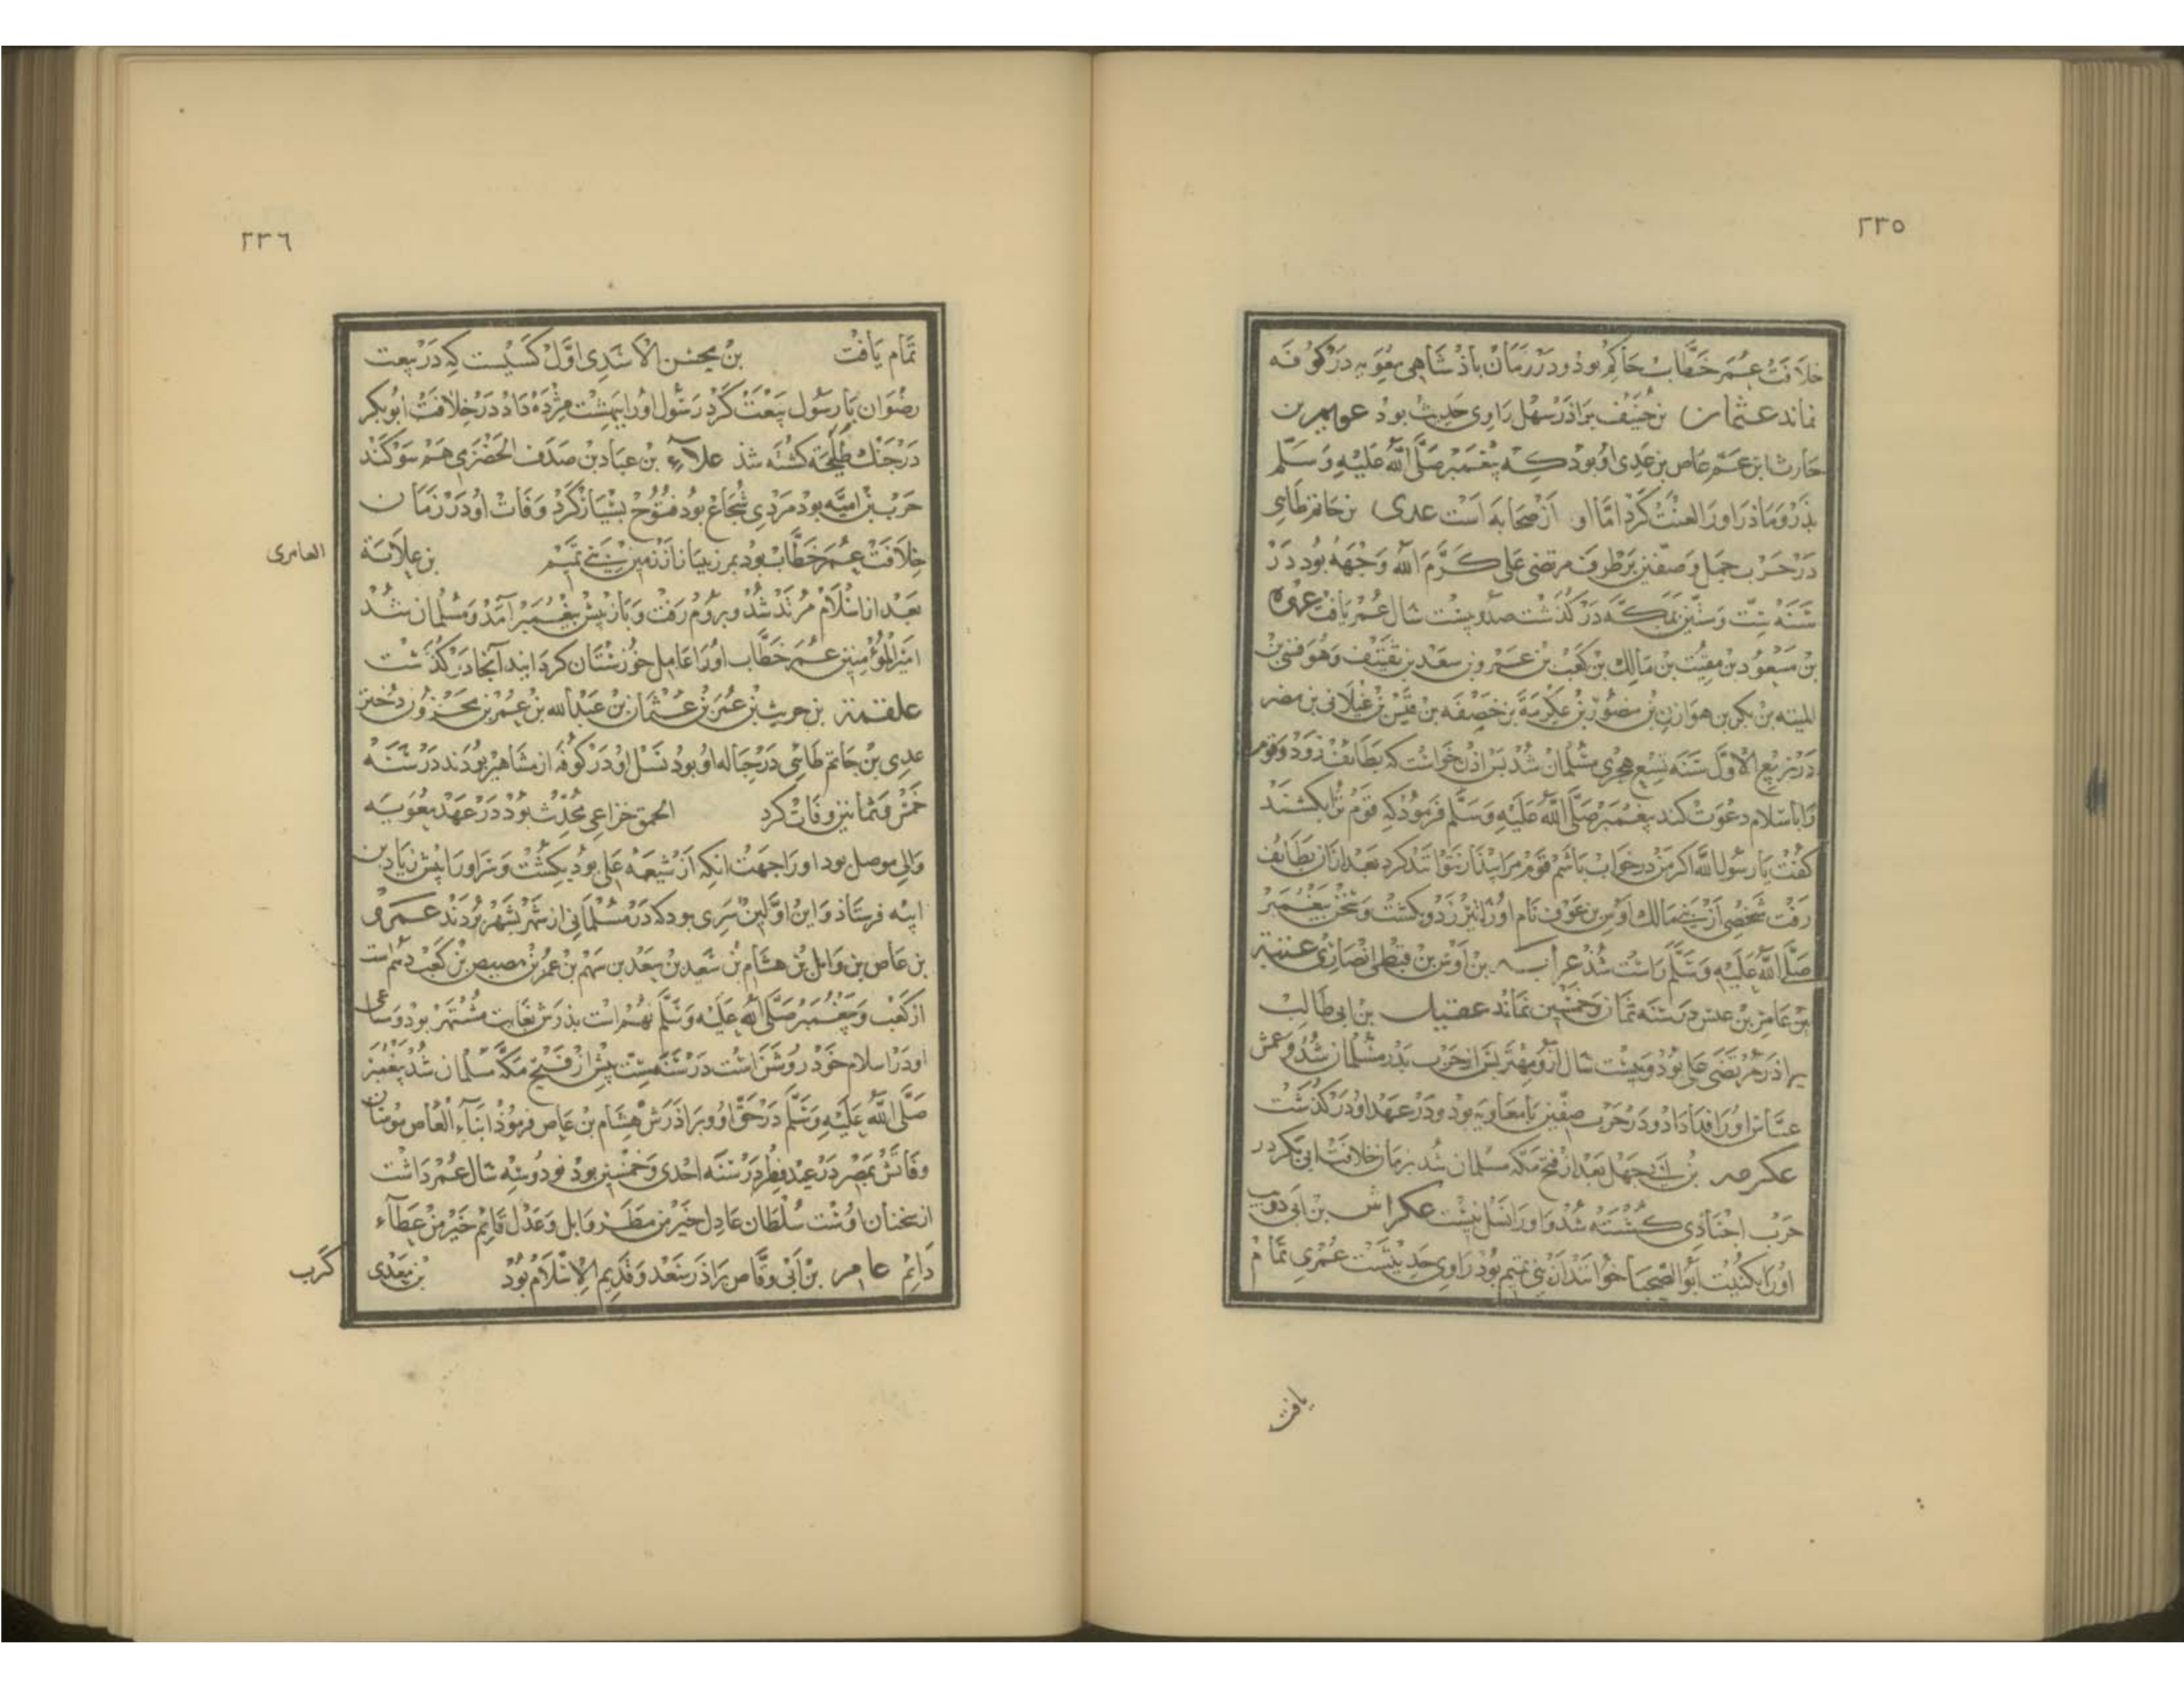 ٢٣٥
خلافت عمر خطاب حاکم بوذ و در زمان باذشاهی معویه در کوفه
نماند عثمان بن حنیف براذر سهل راوی حدیث بود عویمر بن
حارث ابن عم عاص بن عدی او بود که پیغمبر صلی الله علیه و سلم
پذر و ماذر او را لعنت کرد اما او از صحابه است عدی بن حاتم طایی
در حرب جمل و صفین بر طرف مرتضی علی کرم الله وجهه بود در
سنه ست و ستین بمکه در کذشت صد و بیست سال عمر یافت عروه
بن مسعود بن مغیث بن مالک بن کعب بن عمرو بن سعد بن ثقیف و هو قسی بن
المینه بن بکر بن هوازن بن منصور بن عکرمه بن خصفه بن قیس بن غیلان بن مضر
در ربیع الاول سنه تسع هجری مسلمان شد بس اذن خواست که بطایف رود و قوم
را باسلام دعوت کند پیغمبر صلی الله علیه و سلم فرمود که قوم ترا بکشند
کفت یا رسول الله اکر من در خواب باشم قوم مرا بیذار نتوانند کرد بعد از آن بطایف
رفت شخصی از بنی مالک اوس بن عوف نام او را تیر زد و بکشت و سخن پیغمبر
صلی الله علیه و سلم راست شذ عرابه بن اوس بن قیظی انصاری عنبسه
بن عامر بن عبس در سنه ثمان و خمسین نماند عقیل بن ابی طالب
براذر مرتضی علی بود و بیست سال ازو مهتر بس از حرب بدر مسلمان شد و عمش
عباس او را فدا داد و در حرب صفین با معاویه بود و در عهد او در کذشت
عکرمه بن ابی جهل بعد از فتح مکه مسلمان شد بزمان خلافت ابی بکر در
حرب اجنادی کشته شد و او را نسل نیست عکراش بن ابی ذویب
او را بکنیت ابو الصهبا خوانند از بنی تمیم بود راوی حدیثست عمری تمام
یافت
٢٣٦
تمام یافت بن محسن الاسدی اول کسیست که در بیعت
رضوان با رسول بیعت کرد رسول او را ببهشت مژده داد در خلافت ابوبکر
در جنک طلیحه کشته شد علاء بن عباد بن صدف الحضرمی هم سوکند
حرب بن امیه بود مردی شجاع بود فتوح بسیار کرد وفات او در زمان
خلافت عمر خطاب بود بمرزبیانان از زمین بنی تمیم بن علاثة
العامری
بعد از اسلام مرتد شد و بروم رفت و باز پیش پیغمبر آمد و مسلمان شد
امیر المؤمنین عمر خطاب او را عامل خوزستان کردانید آنجا در کذشت
علقمة بن حریث بن عمر بن عثمان بن عبد الله بن عمر بن مخزون دختر
عدی بن حاتم طایی در حباله او بود نسل او در کوفه از مشاهیر بودند در سنه
خمس و ثمانین وفات کرد الحمق خزاعی محدث بود در عهد معویه
والی موصل بود او را جهت انکه از شیعه علی بود بکشت و سر او را پیش زیاد بن
ابیه فرستاذ و این اولین سری بود که در مسلمانی از شهر بشهر بردند عمرو
بن عاص بن وایل بن هشام بن سعید بن سعد بن سهم بن عمر بن مصیص بن کعب دهم است
از کعب و پیغمبر صلی الله علیه و سلم نهم است بذرش بغایت مشتهر بود و ساعی
او در اسلام خود روشن است در سنه ست پیش از فتح مکه مسلمان شد پیغمبر
صلی الله علیه و سلم در حق او و براذرش هشام بن عاص فرموذ ابناء العاص مومنان
وفاتش بمصر در عید فطر در سنه احدی و خمسین بود نود و سه سال عمر داشت
از سخنان اوست سلطان عادل خیر من مطر وابل و عدل قایم خیر من عطاء
دایم عامر بن ابی وقاص براذر سعد و قدیم الاسلام بود بن معدی
کرب